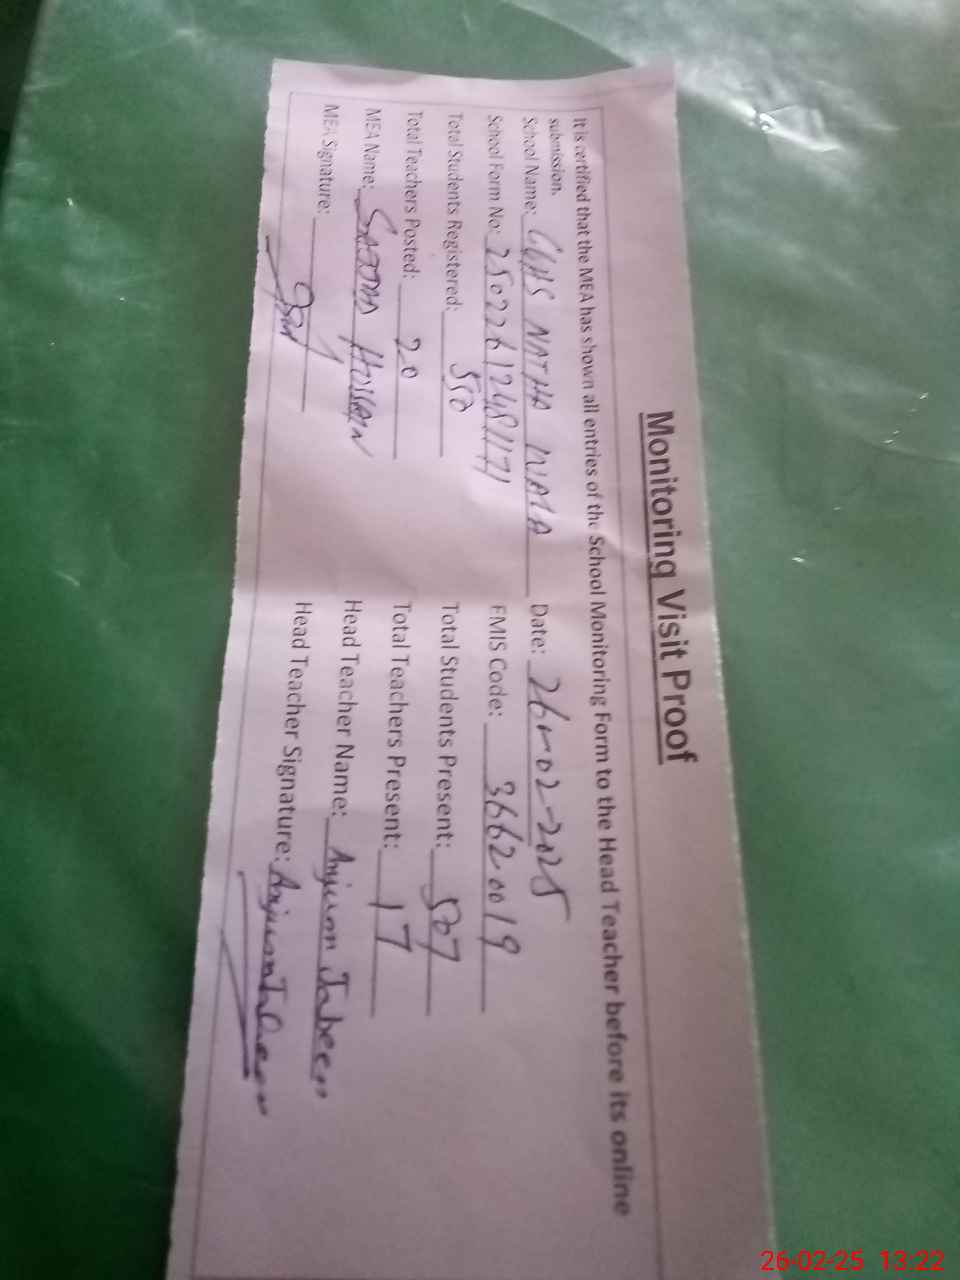 Monitoring Visit Proof
It is certified that the MEA has shown all entries of the School Monitoring Form to the Head Teacher before its online
submission.
School Name: GGHS NATHA WALA Date: 26-02-2025
School Form No: 25022612481171 EMIS Code: 36620019
Total Students Registered: 550 Total Students Present: 507
Total Teachers Posted: 20 Total Teachers Present: 17
MEA Name: SAJJAD HUSSAIN Head Teacher Name: Anjum Jabeen
MEA Signature: Head Teacher Signature: Anjum Jabeen
26-02-25 13:22